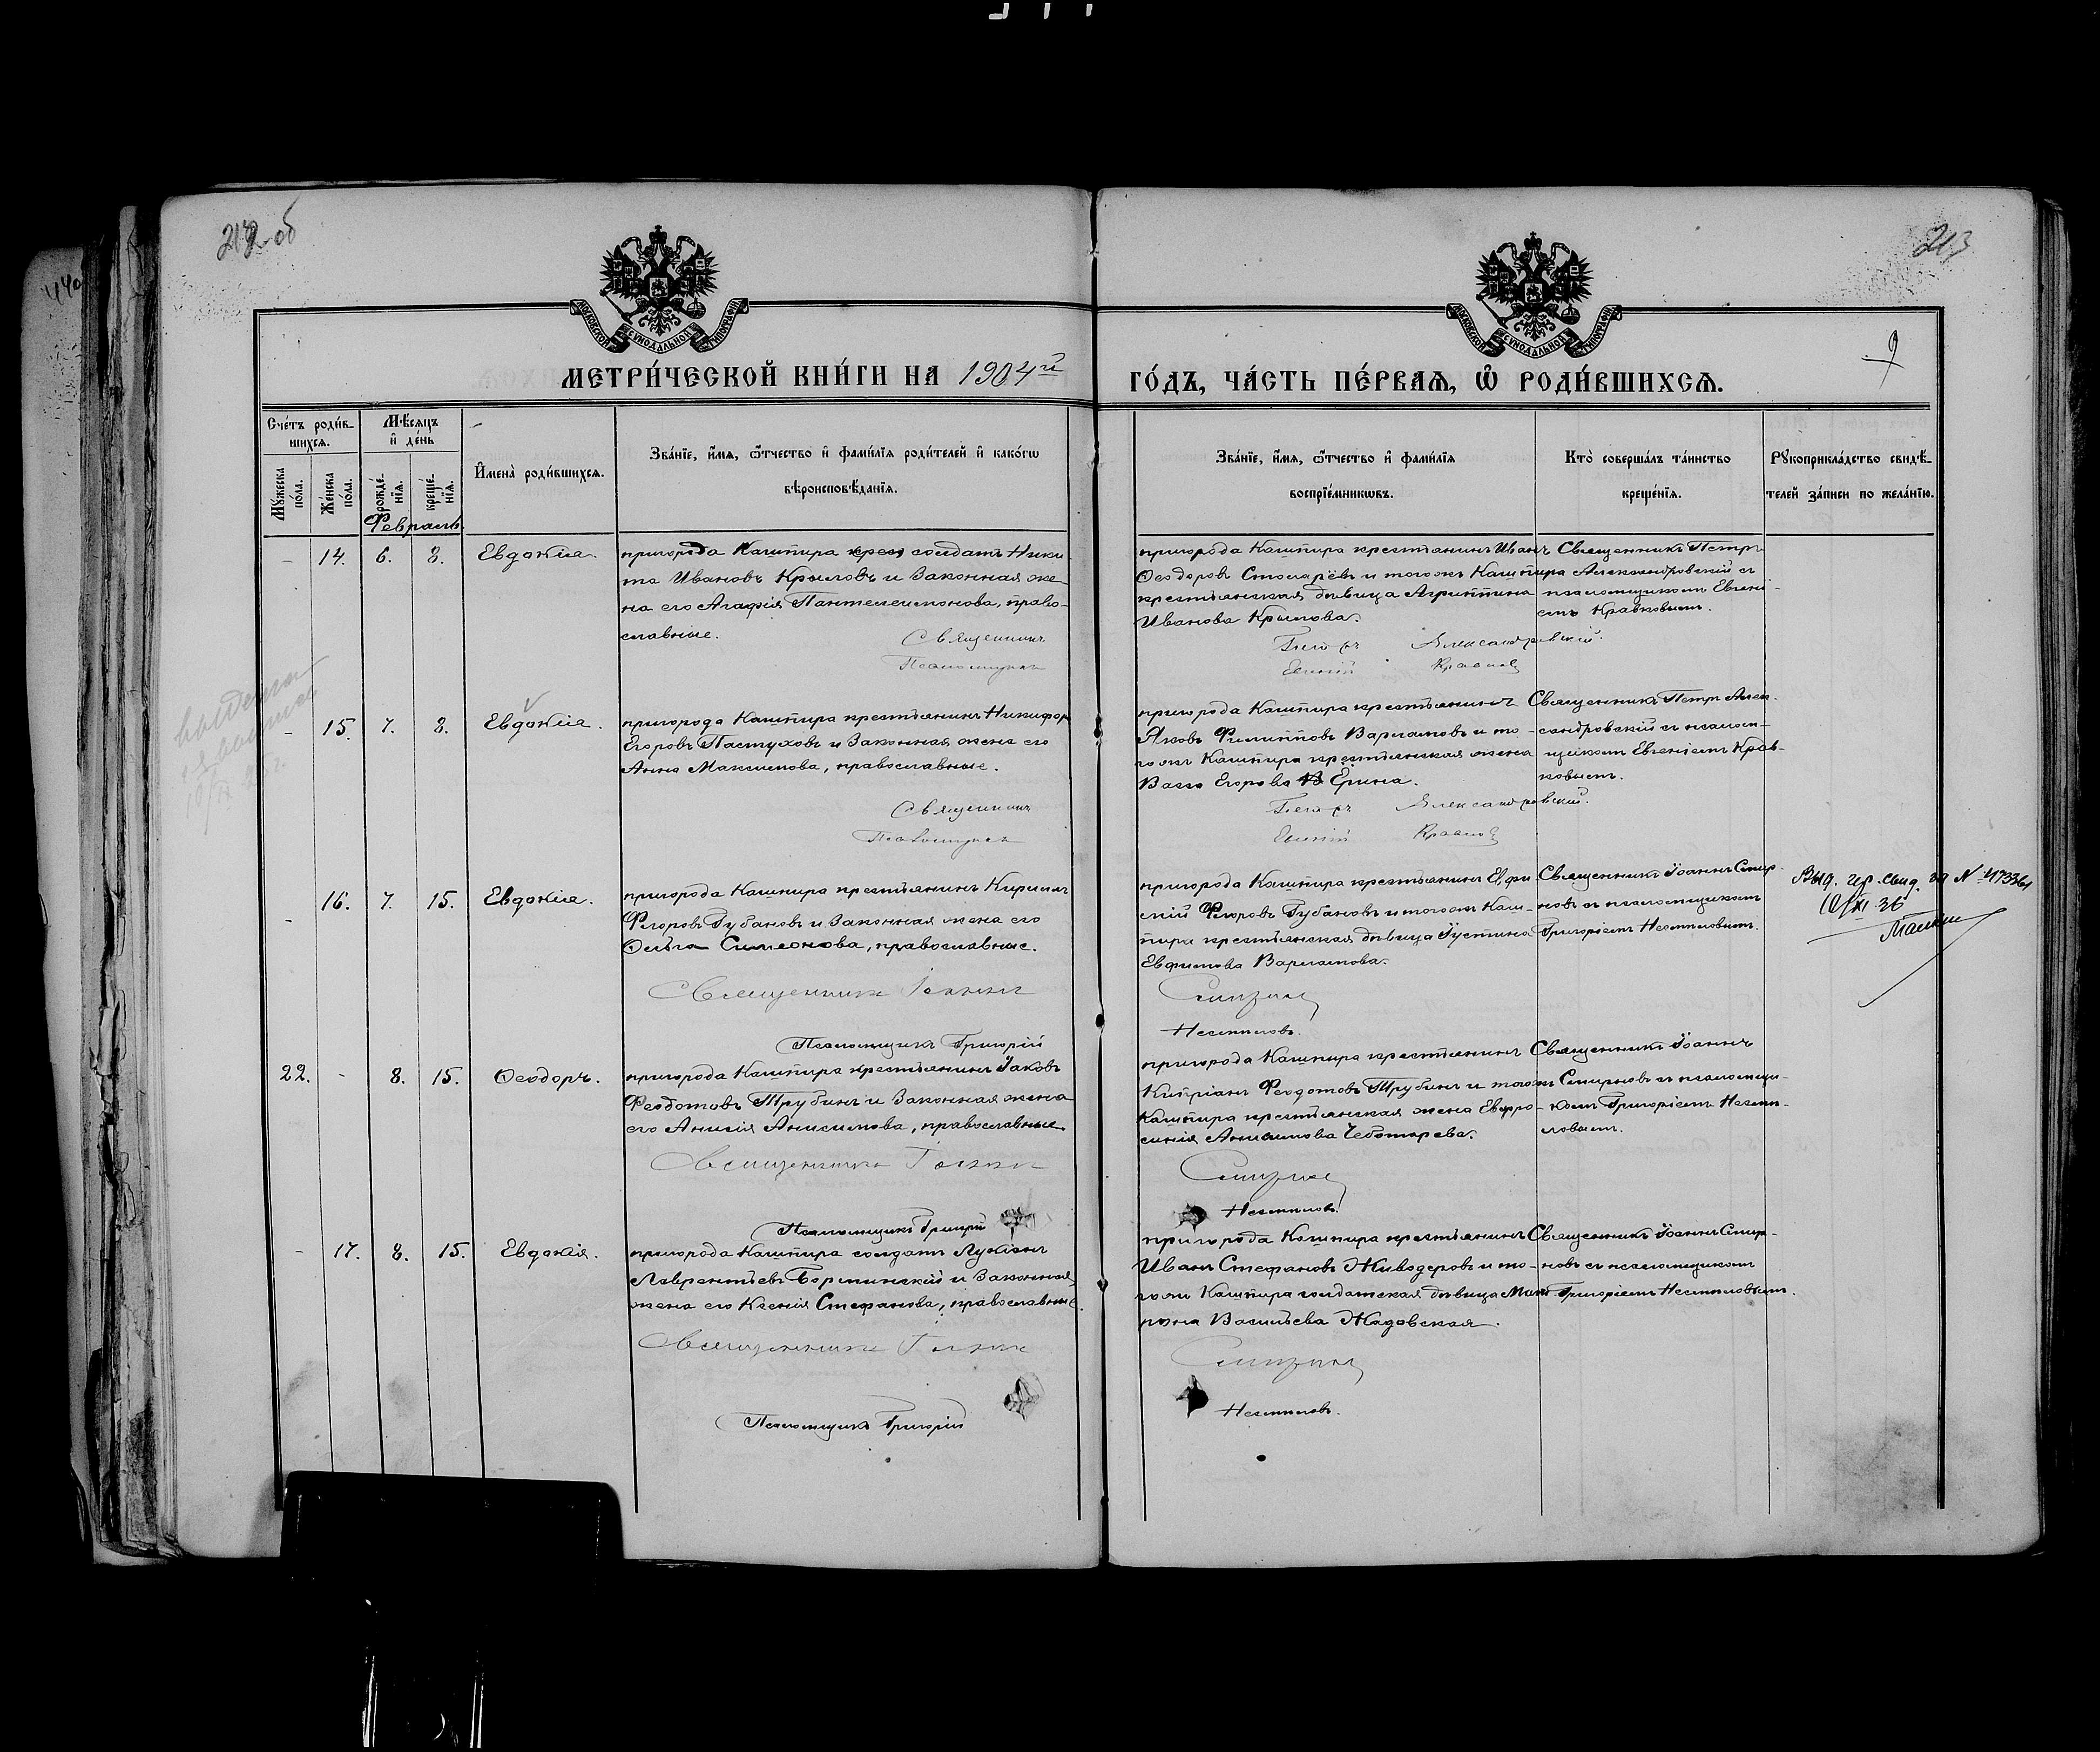 212 об
213
9
МОСКОВСКОЙ СѴНОДАЛЬНОЙ ТИПОГРАФІИ
МОСКОВСКОЙ СѴНОДАЛЬНОЙ ТИПОГРАФІИ
МЕТРИ́ЧЕСКОЙ КНИ́ГИ НА 1904й
ГО́ДЪ, ЧА́СТЬ ПЕ́РВАѦ, Ѽ РОДИ́ВШИХСѦ.
Сче́тъ роди́в-
шихсѧ.
Мѣ́сѧцъ
и҆ де́нь
Мꙋ́жеска
по́ла.
Же́нска
по́ла.
рожде́-
нїѧ.
креще́-
нїѧ.
И҆мена̀ роди́вшихсѧ.
Зва́нїе, и҆́мѧ, ѻ҆́тчество и҆ фами́лїѧ роди́телей и҆ како́гѡ
вѣроисповѣ́данїѧ.
Зва́нїе, и҆́мѧ, ѻ҆́тчество и҆ фами́лїѧ
воспрїе́мникѡвъ.
Кто̀ соверша́лъ та́инство
креще́нїѧ.
Рꙋкоприкла́дство свидѣ́-
телей за́писи по жела́нїю.
Февраль.
- 14. 6. 8. Евдокія.
пригорода Кашпира солдатъ Ники-
та Ивановъ Крыловъ и законная же-
на его Агафія Пантелеимонова, право-
славные.
Священникъ
Псаломщикъ
пригорода Кашпира крестьянинъ Иванъ
Ѳеодоровъ Столярёвъ и тогожъ Кашпира
крестьянская дѣвица Агриппина
Иванова Крылова.
Петръ Александровскій.
Евгеній Кравковъ
Священникъ Петръ
Александровскій съ
псаломщикомъ Евгені-
емъ Кравковымъ.
- 15. 7. 8. Евдокія.
пригорода Кашпира крестьянинъ Никифоръ
Егоровъ Пастуховъ и законная жена его
Анна Максимова, православные.
Священникъ
Псаломщикъ
пригорода Кашпира крестьянинъ
Яковъ Филипповъ Варламовъ и то-
гожъ Кашпира крестьянская жена
Васса Егорова Ерина.
Петръ Александровскій.
Евгеній Кравковъ
Священникъ Петръ Алек-
сандровскій съ псалом-
щикомъ Евгеніемъ Крав-
ковымъ.
- 16. 7. 15. Евдокія.
пригорода Кашпира крестьянинъ Кириллъ
Ѳедоровъ Губановъ и законная жена его
Ольга Симеонова, православные.
Священникъ Іоаннъ
Псаломщикъ Григорій
пригорода Кашпира крестьянинъ Евфи-
мій Ѳедоровъ Губановъ и тогожъ Каш-
пира крестьянская дѣвица Іустина
Евфимова Варламова.
Смирновъ
Несмѣловъ.
Священникъ Іоаннъ Смир-
новъ съ псаломщикомъ
Григоріемъ Несмѣловымъ.
Выд. . свид. за №
10/XI 36
22. - 8. 15. Ѳеодоръ.
пригорода Кашпира крестьянинъ Іаковъ
Ѳеодотовъ Трубинъ и законная жена
его Анисія Анисимова, православные.
Священникъ Іоаннъ
Псаломщикъ Григорій
пригорода Кашпира крестьянинъ
Кипріанъ Ѳеодотовъ Трубинъ и тогожъ
Кашпира крестьянская жена Евфро-
синія Анисимова Чеботарева.
Смирновъ
Несмѣловъ.
Священникъ Іоаннъ
Смирновъ съ псаломщи-
комъ Григоріемъ Несмѣ-
ловымъ.
- 17. 8. 15. Евдокія.
пригорода Кашпира солдатъ Лукіанъ
Лаврентьевъ и законная
жена его Ксенія Стефанова, православные.
Священникъ Іоаннъ
Псаломщикъ Григорій
пригорода Кашпира крестьянинъ
Иванъ Стефановъ Живодеровъ и то-
гожъ Кашпира солдатская дѣвица Мат-
рона Васильева Жадовская.
Смирновъ
Несмѣловъ.
Священникъ Іоаннъ Смир-
новъ съ псаломщикомъ
Григоріемъ Несмѣловымъ.